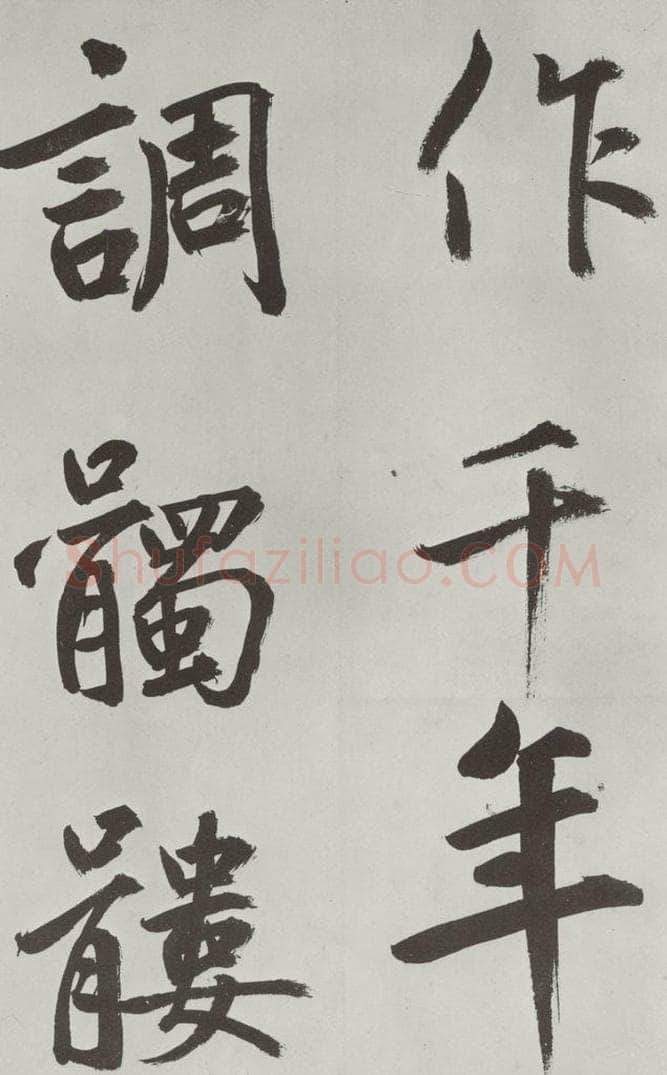 作千年
調髑髏
Shufaziliao.COM